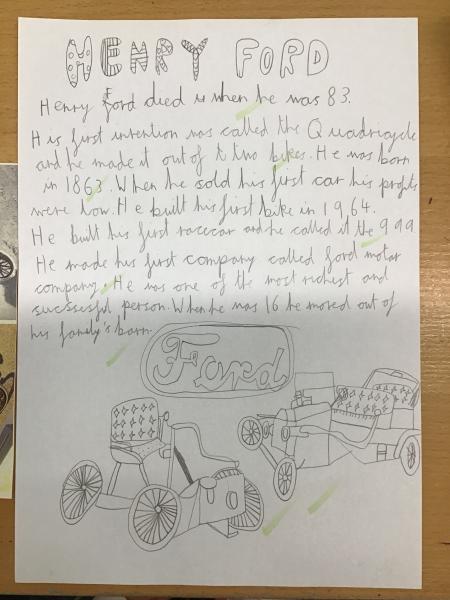 HENRY FORD
Henry Ford died is when he was 83.
His first invention was called the Quadricycle
and he made it out of t two bikes. He was born
in 1863. When he sold his first car his profits
were low. He built his first bike in 1964.
He built his first racecar and he called it the 999
He made his first company called ford motar
company. He was one of the most richest and
successful person. When he was 16 he moved out of
his family's barn.
Ford
H